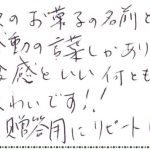 のお菓子の名前と
感動の言葉しかあり
食感といい何とも
わいです!!
贈答用にリピート